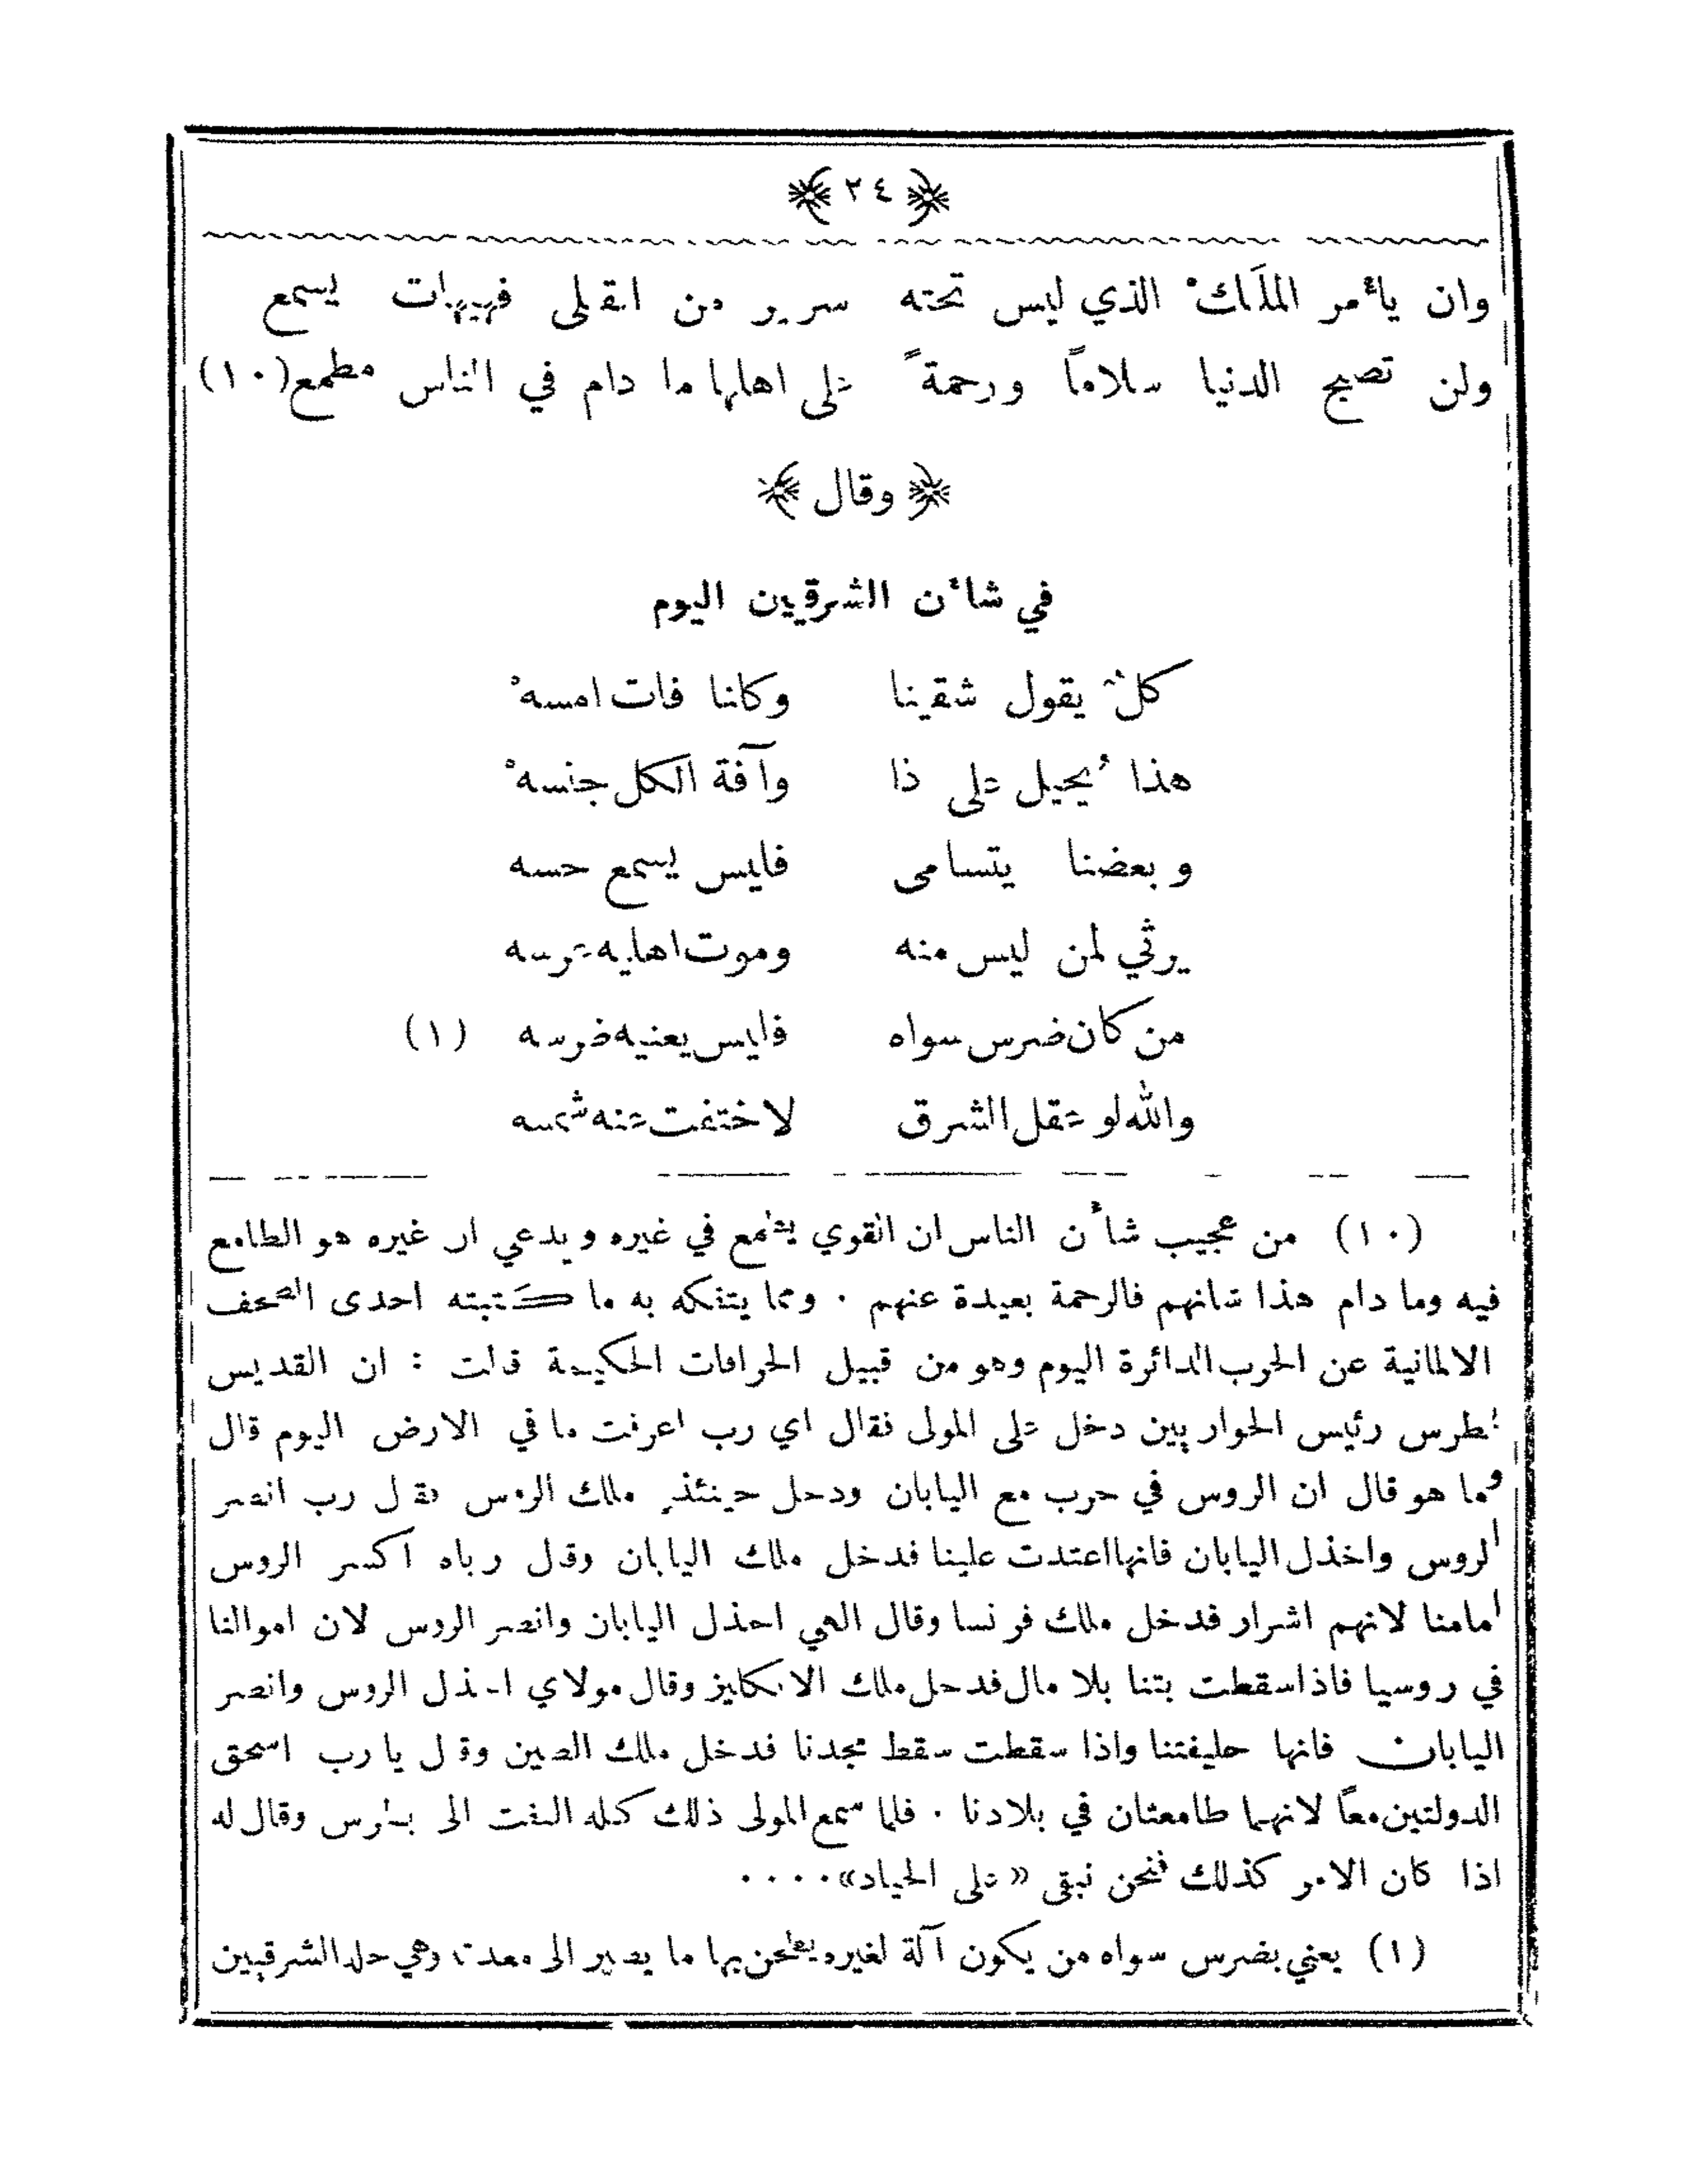 ٢٤
وان يأمر الملَكْ الذي ليس تحته سرير من القتلى فهيهات يسمع
ولن تصبح الدنيا سلاماً ورحمةً على اهلها ما دام في الناس مطمع (١٠)
وقال
في شأن الشرقيين اليوم
كلٌ يقول شقينا وكلنا فات امسهْ
هذا يُحيل على ذا وآفة الكل جنسهْ
وبعضنا يتسامى فليس يسمع حسه
يرثي لمن ليس منه وموت اهليه عرسه
من كان ضرس سواه فليس يعنيه ضرسه (١)
والله لو عقل الشرق لاختفت عنه شمسه
(١٠) من عجيب شأن الناس ان القوي يطمع في غيره ويدعي ان غيره هو الطامع
فيه وما دام هذا شانهم فالرحمة بعيدة عنهم . ومما يتفكه به ما كتبته احدى الصحف
الالمانية عن الحرب الدائرة اليوم وهو من قبيل الخرافات الحكيمة قالت : ان القديس
بطرس رئيس الحواريين دخل على المولى فقال اي رب اعرفت ما في الارض اليوم قال
وما هو قال ان الروس في حرب مع اليابان ودخل حينئذٍ ملك الروس فقال رب انصر
الروس واخذل اليابان فانها اعتدت علينا فدخل ملك اليابان وقال رباه اكسر الروس
امامنا لانهم اشرار فدخل ملك فرنسا وقال الهي اخذل اليابان وانصر الروس لان اموالنا
في روسيا فاذا سقطت بتنا بلا مال فدخل ملك الانكليز وقال مولاي اخذل الروس وانصر
اليابان فانها حليفتنا واذا سقطت سقط مجدنا فدخل ملك الصين وقال يا رب اسحق
الدولتين معاً لانهما طامعتان في بلادنا . فلما سمع المولى ذلك كله التفت الى بطرس وقال له
اذا كان الامر كذلك فنحن نبقى « على الحياد» ....
(١) يعني بضرس سواه من يكون آلة لغيره يطحن بها ما يصير الى معدته وهي حال الشرقيين